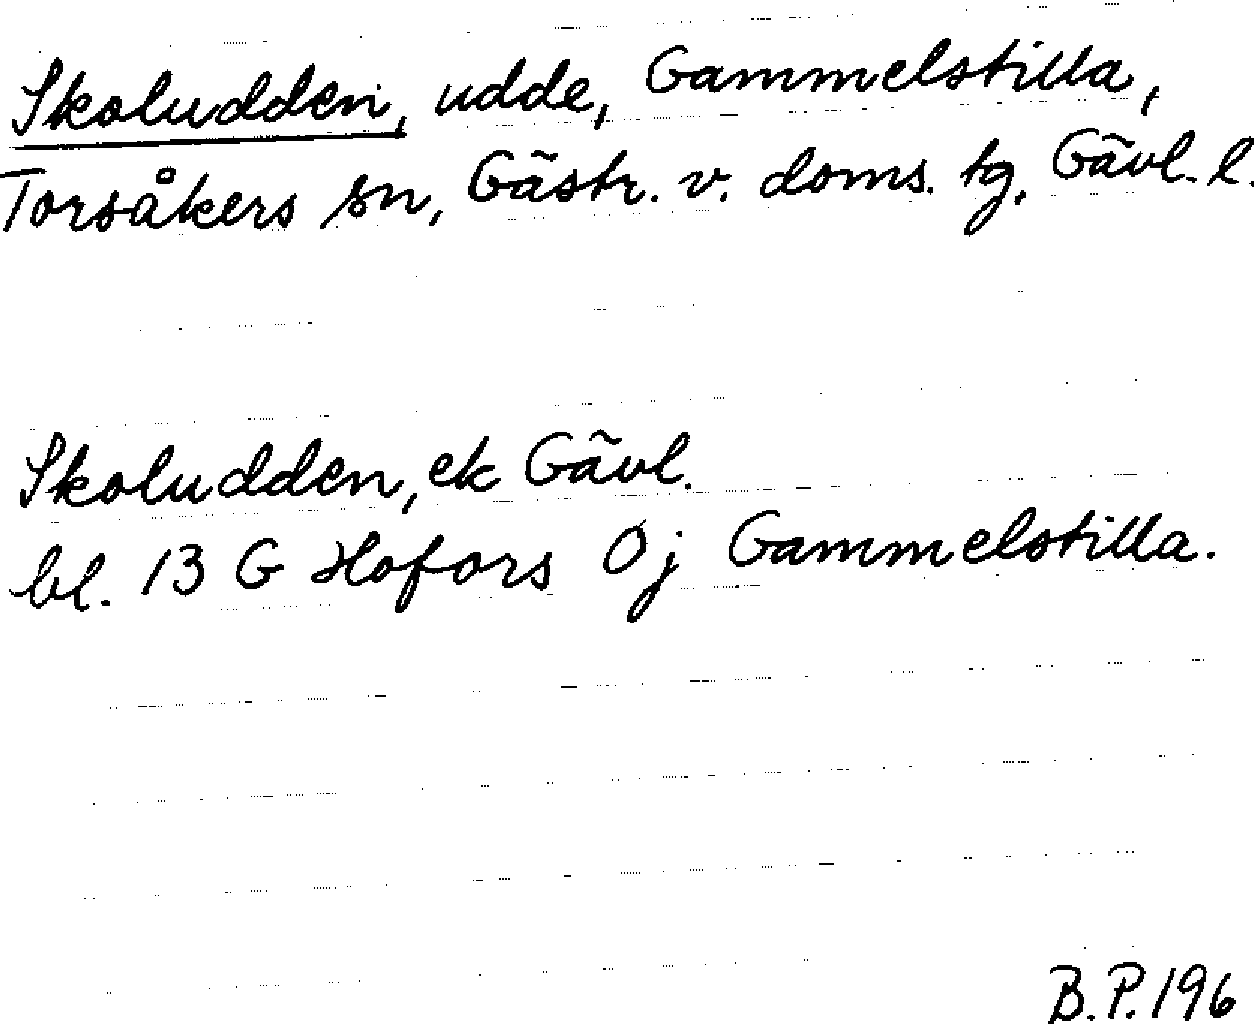 Skoludden, udde, Gammelstilla,
Torsåkers sn, Gästr. v. doms. tg, Gävl. l.
Skoludden, ek Gävl.
bl. 13 G Hofors 0j Gammelstilla.
B.P.196